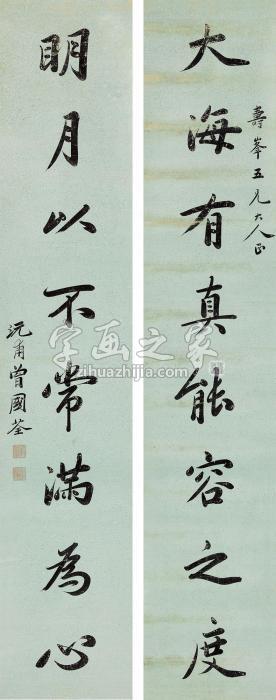 壽峯五兄大人正
大海有真能容之度
明月以不常滿為心
沅甫曾國荃
字画之家
zihuazhijia.com